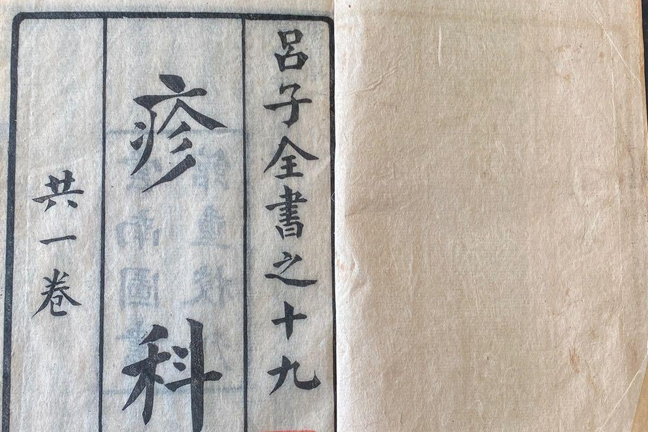 呂子全書之十九
疹科
共一卷